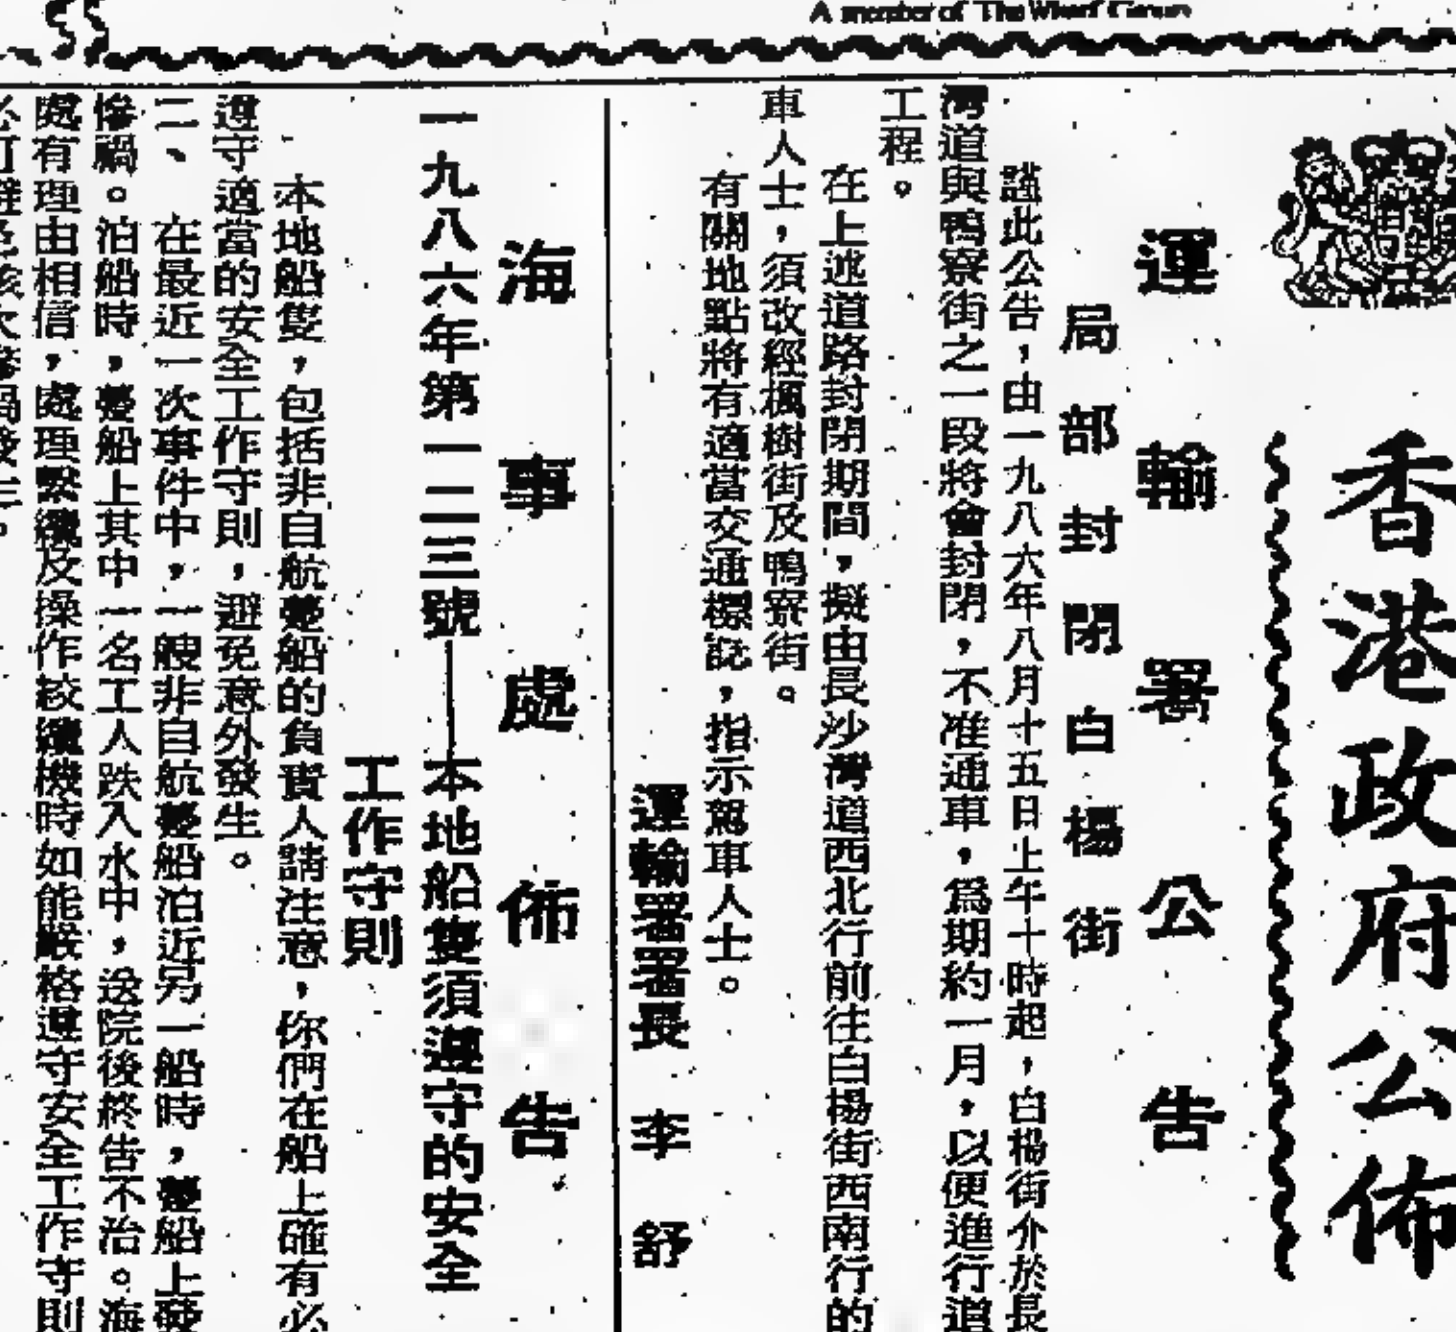 A member of The Wharf Group
香港政府公佈
運輸署公告
局部封閉白楊街
謹此公告，由一九八六年八月十五日上午十時起，白楊街介於長
灣道與鴨寮街之一段將會封閉，不准通車，為期約一月，以便進行道
工程。
在上述道路封閉期間，擬由長沙灣道西北行前往白楊街西南行的
車人士，須改經楓樹街及鴨寮街。
有關地點將有適當交通標誌，指示駕車人士。
運輸署署長 李 舒
海事處佈告
一九八六年第一二三號——本地船隻須遵守的安全
工作守則
本地船隻，包括非自航躉船的負責人請注意，你們在船上確有必
遵守適當的安全工作守則，避免意外發生。
二、 在最近一次事件中，一艘非自航躉船泊近另一船時，躉船上發
慘禍。泊船時，躉船上其中一名工人跌入水中，送院後終告不治。海
處有理由相信，處理繫纜及操作絞纜機時如能嚴格遵守安全工作守則
必可避免該次慘禍發生。